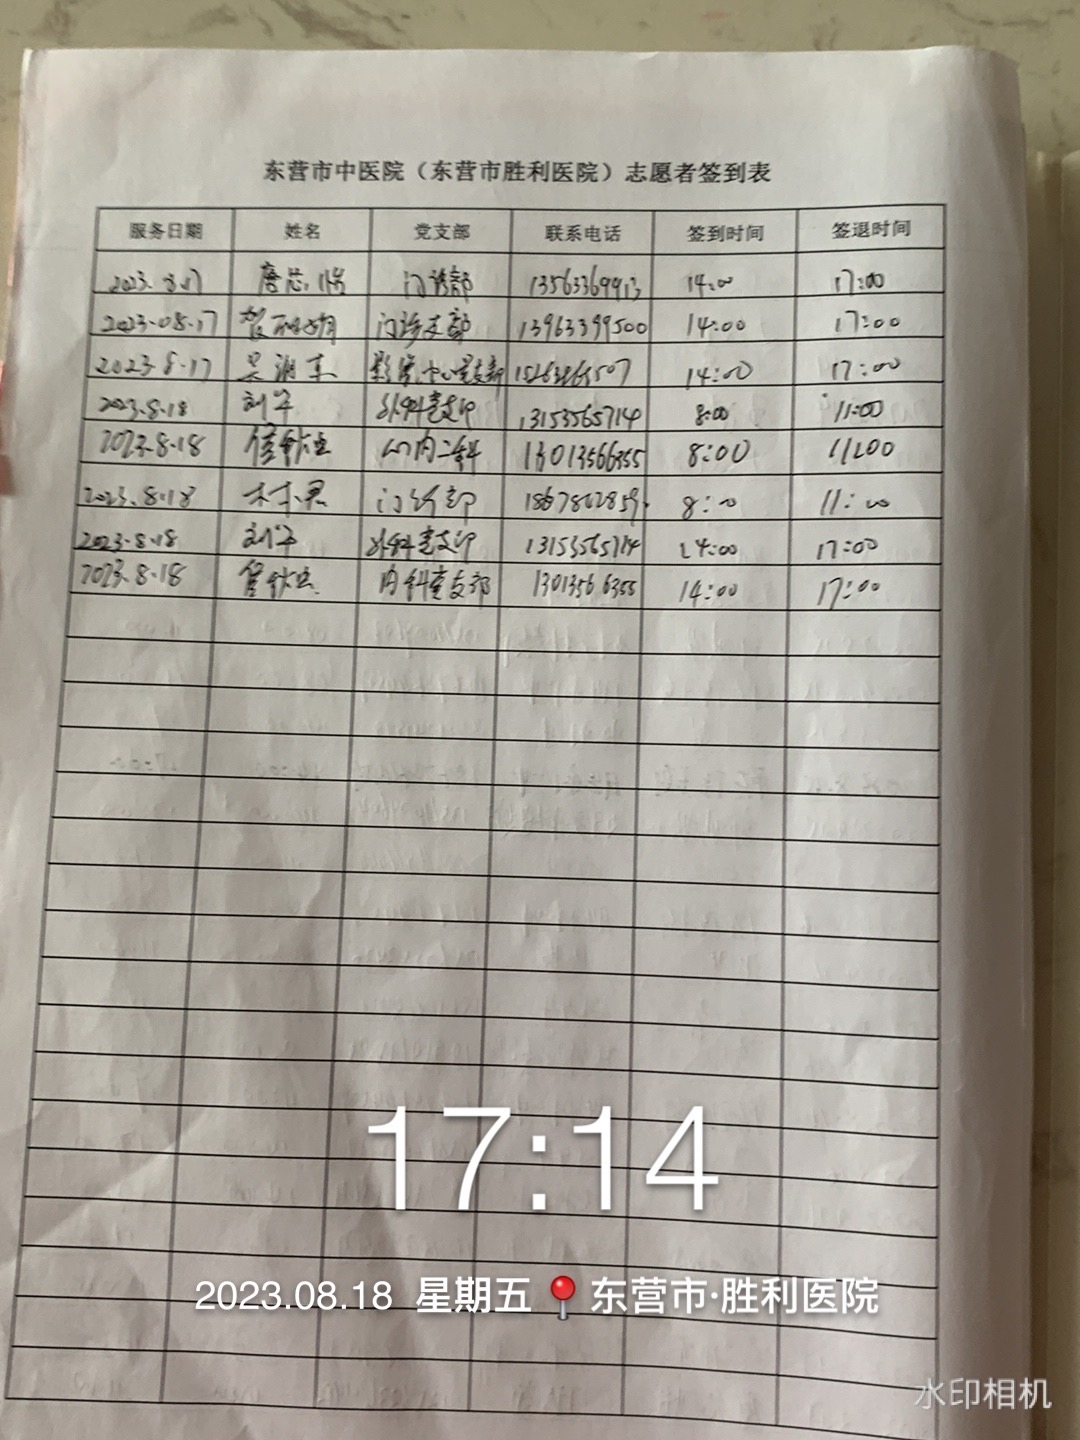 东营市中医院（东营市胜利医院）志愿者签到表
服务日期 姓名 党支部 联系电话 签到时间 签退时间
2023.8.17 唐芯 门诊部 13563369913 14:00 17:00
2023.08.17 门诊支部 13963399500 14:00 17:00
2023.8.17 吴 14:00 17:00
2023.8.18 刘军 外科党支部 13153565714 8:00 11:00
2023.8.18 内二科 13013566355 8:00 11:00
2023.8.18 林 门诊部 8:00 11:00
2023.8.18 刘军 外科党支部 13153565714 14:00 17:00
2023.8.18 内科党支部 13013566355 14:00 17:00
17:14
2023.08.18 星期五 东营市·胜利医院
水印相机